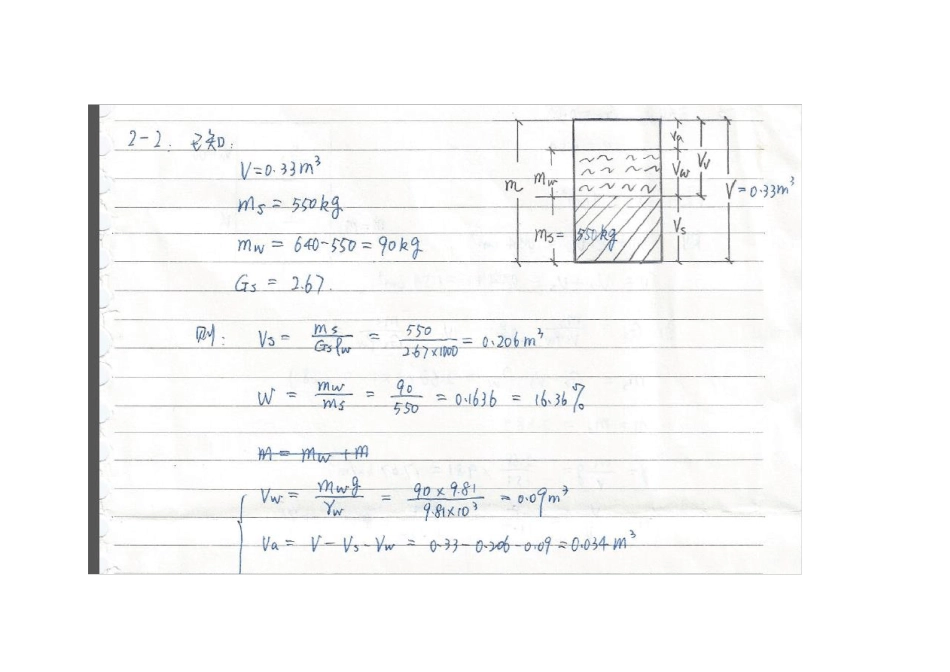 2-2. 已知:
V=0.33m³
ms = 550kg
mw = 640-550 = 90kg
Gs = 2.67.
m
mw
ms= 550kg
Va
Vw
Vv
Vs
V=0.33m³
则: Vs = ms/Gsρw = 550/2.67×1000 = 0.206m³
W = mw/ms = 90/550 = 0.1636 = 16.36%
m = mw + m
Vw = mwg/γw = 90×9.81/9.81×10³ = 0.09m³
Va = V-Vs-Vw = 0.33-0.206-0.09=0.034m³